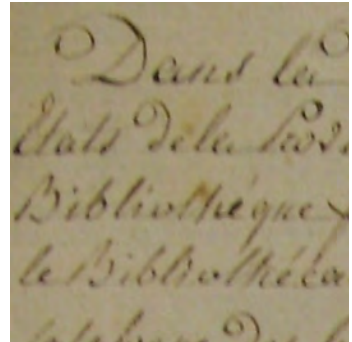 Dans la
Etats de la
Bibliothèque
le Bibliothéca